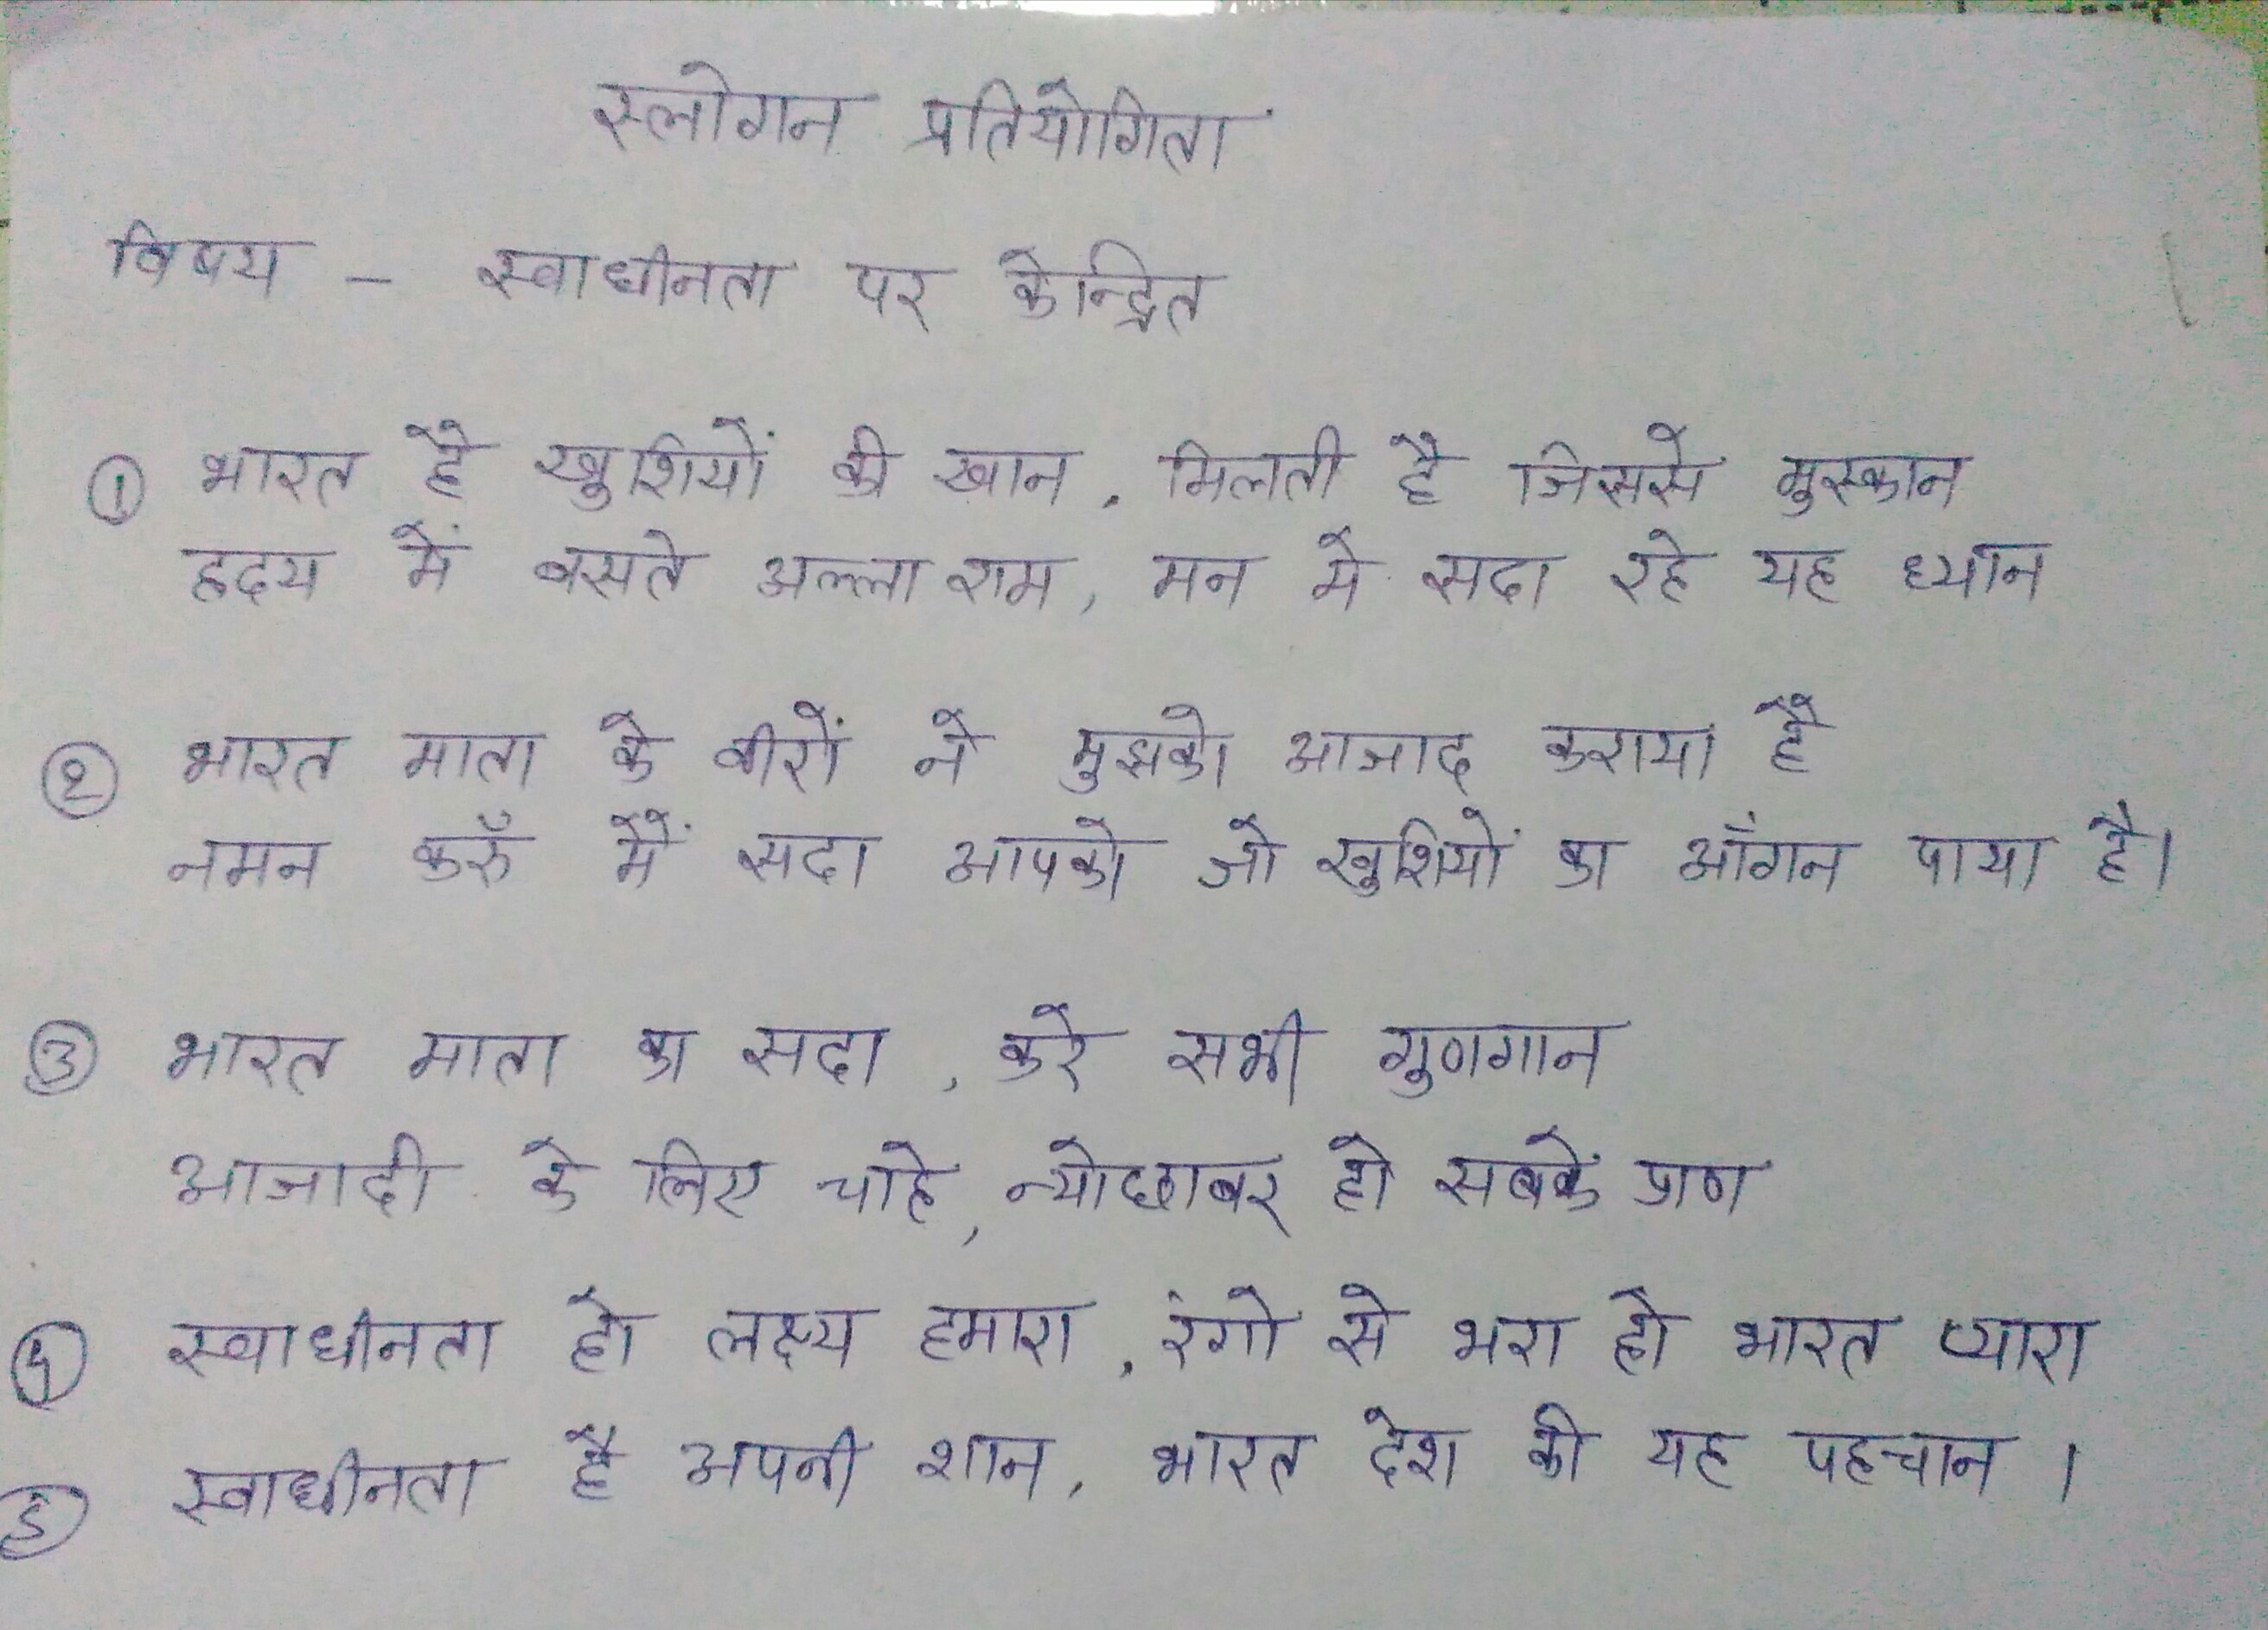 स्लोगन प्रतियोगिता
विषय - स्वाधीनता पर केन्द्रित
① भारत है खुशियों की खान, मिलती है जिससे मुस्कान
हृदय में बसते अल्ला राम, मन मे सदा रहे यह ध्यान
② भारत माता के वीरों ने मुझको आजाद कराया है
नमन करुँ मैं सदा आपको जो खुशियों का आँगन पाया है।
③ भारत माता का सदा, करे सभी गुणगान
आजादी के लिए चाहे, न्योछाबर हो सबके प्राण
④ स्वाधीनता हो लक्ष्य हमारा, रंगो से भरा हो भारत प्यारा
⑤ स्वाधीनता है अपनी शान, भारत देश की यह पहचान।